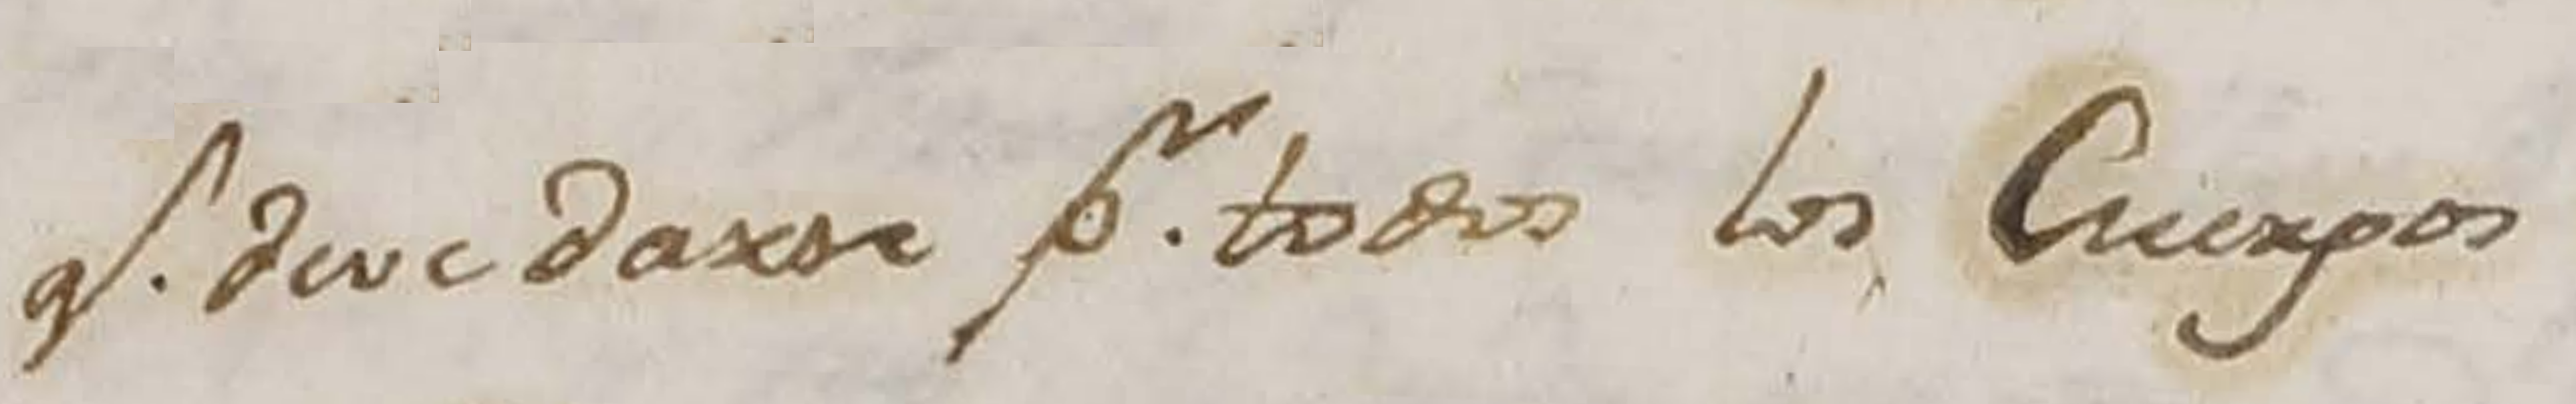 q.^e deve darse p.^r todos los Cuerpos